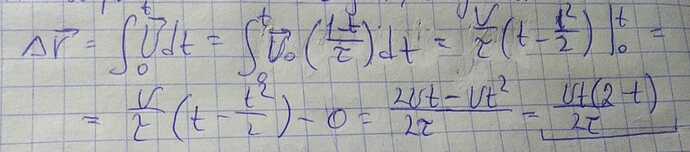 Δr⃗ = ∫₀ᵗ v⃗ dt = ∫₀ᵗ v⃗₀ ((1-t)/τ) dt = v/τ (t - t²/2) |₀ᵗ =
= v/τ (t - t²/2) - 0 = (2vt - vt²)/2τ = vt(2-t)/2τ